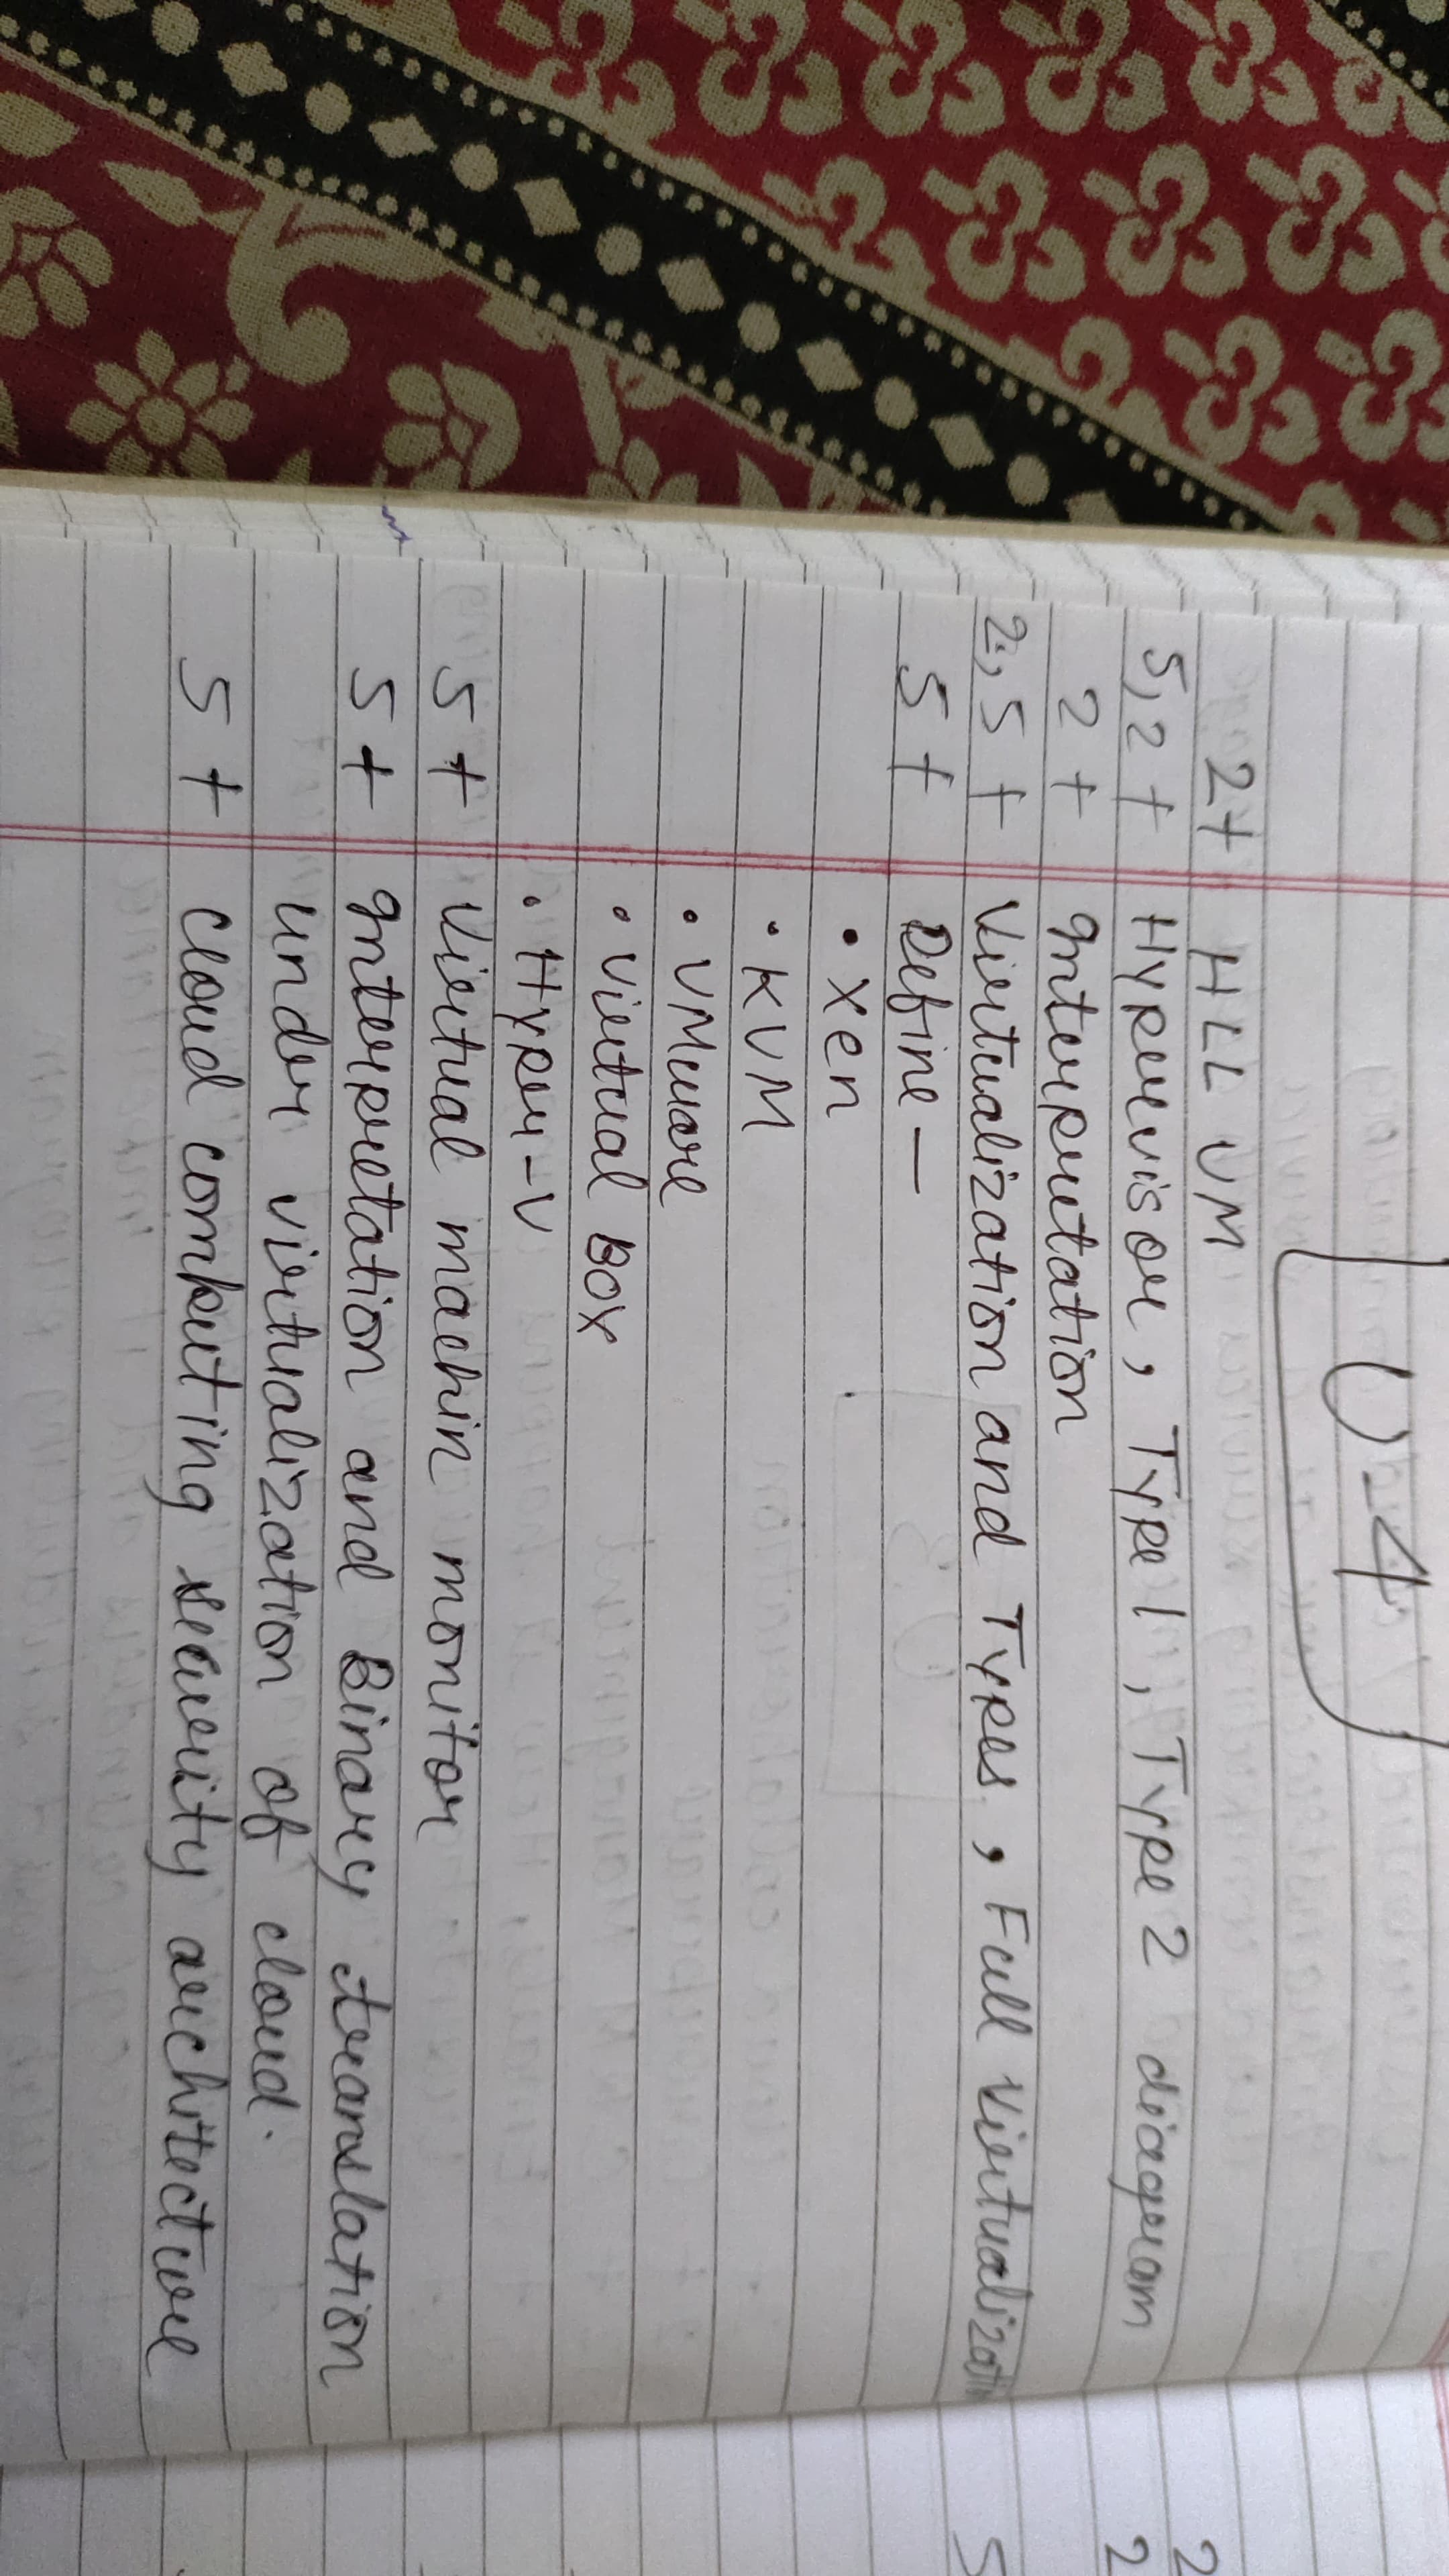 U-4
2+ HLL VM
5,2+ Hypervisor, Type 1, Type 2 diagram
2+ Interputation
2,5+ Virtualization and Types, Full Virtualization
5+ Define —
• Xen
• KVM
• VMware
• Virtual Box
• Hyper-V
5+ Virtual machin monitor
5+ Interpretation and Binary translation
under virtualization of cloud.
5+ cloud computing security architecture
2
2
5